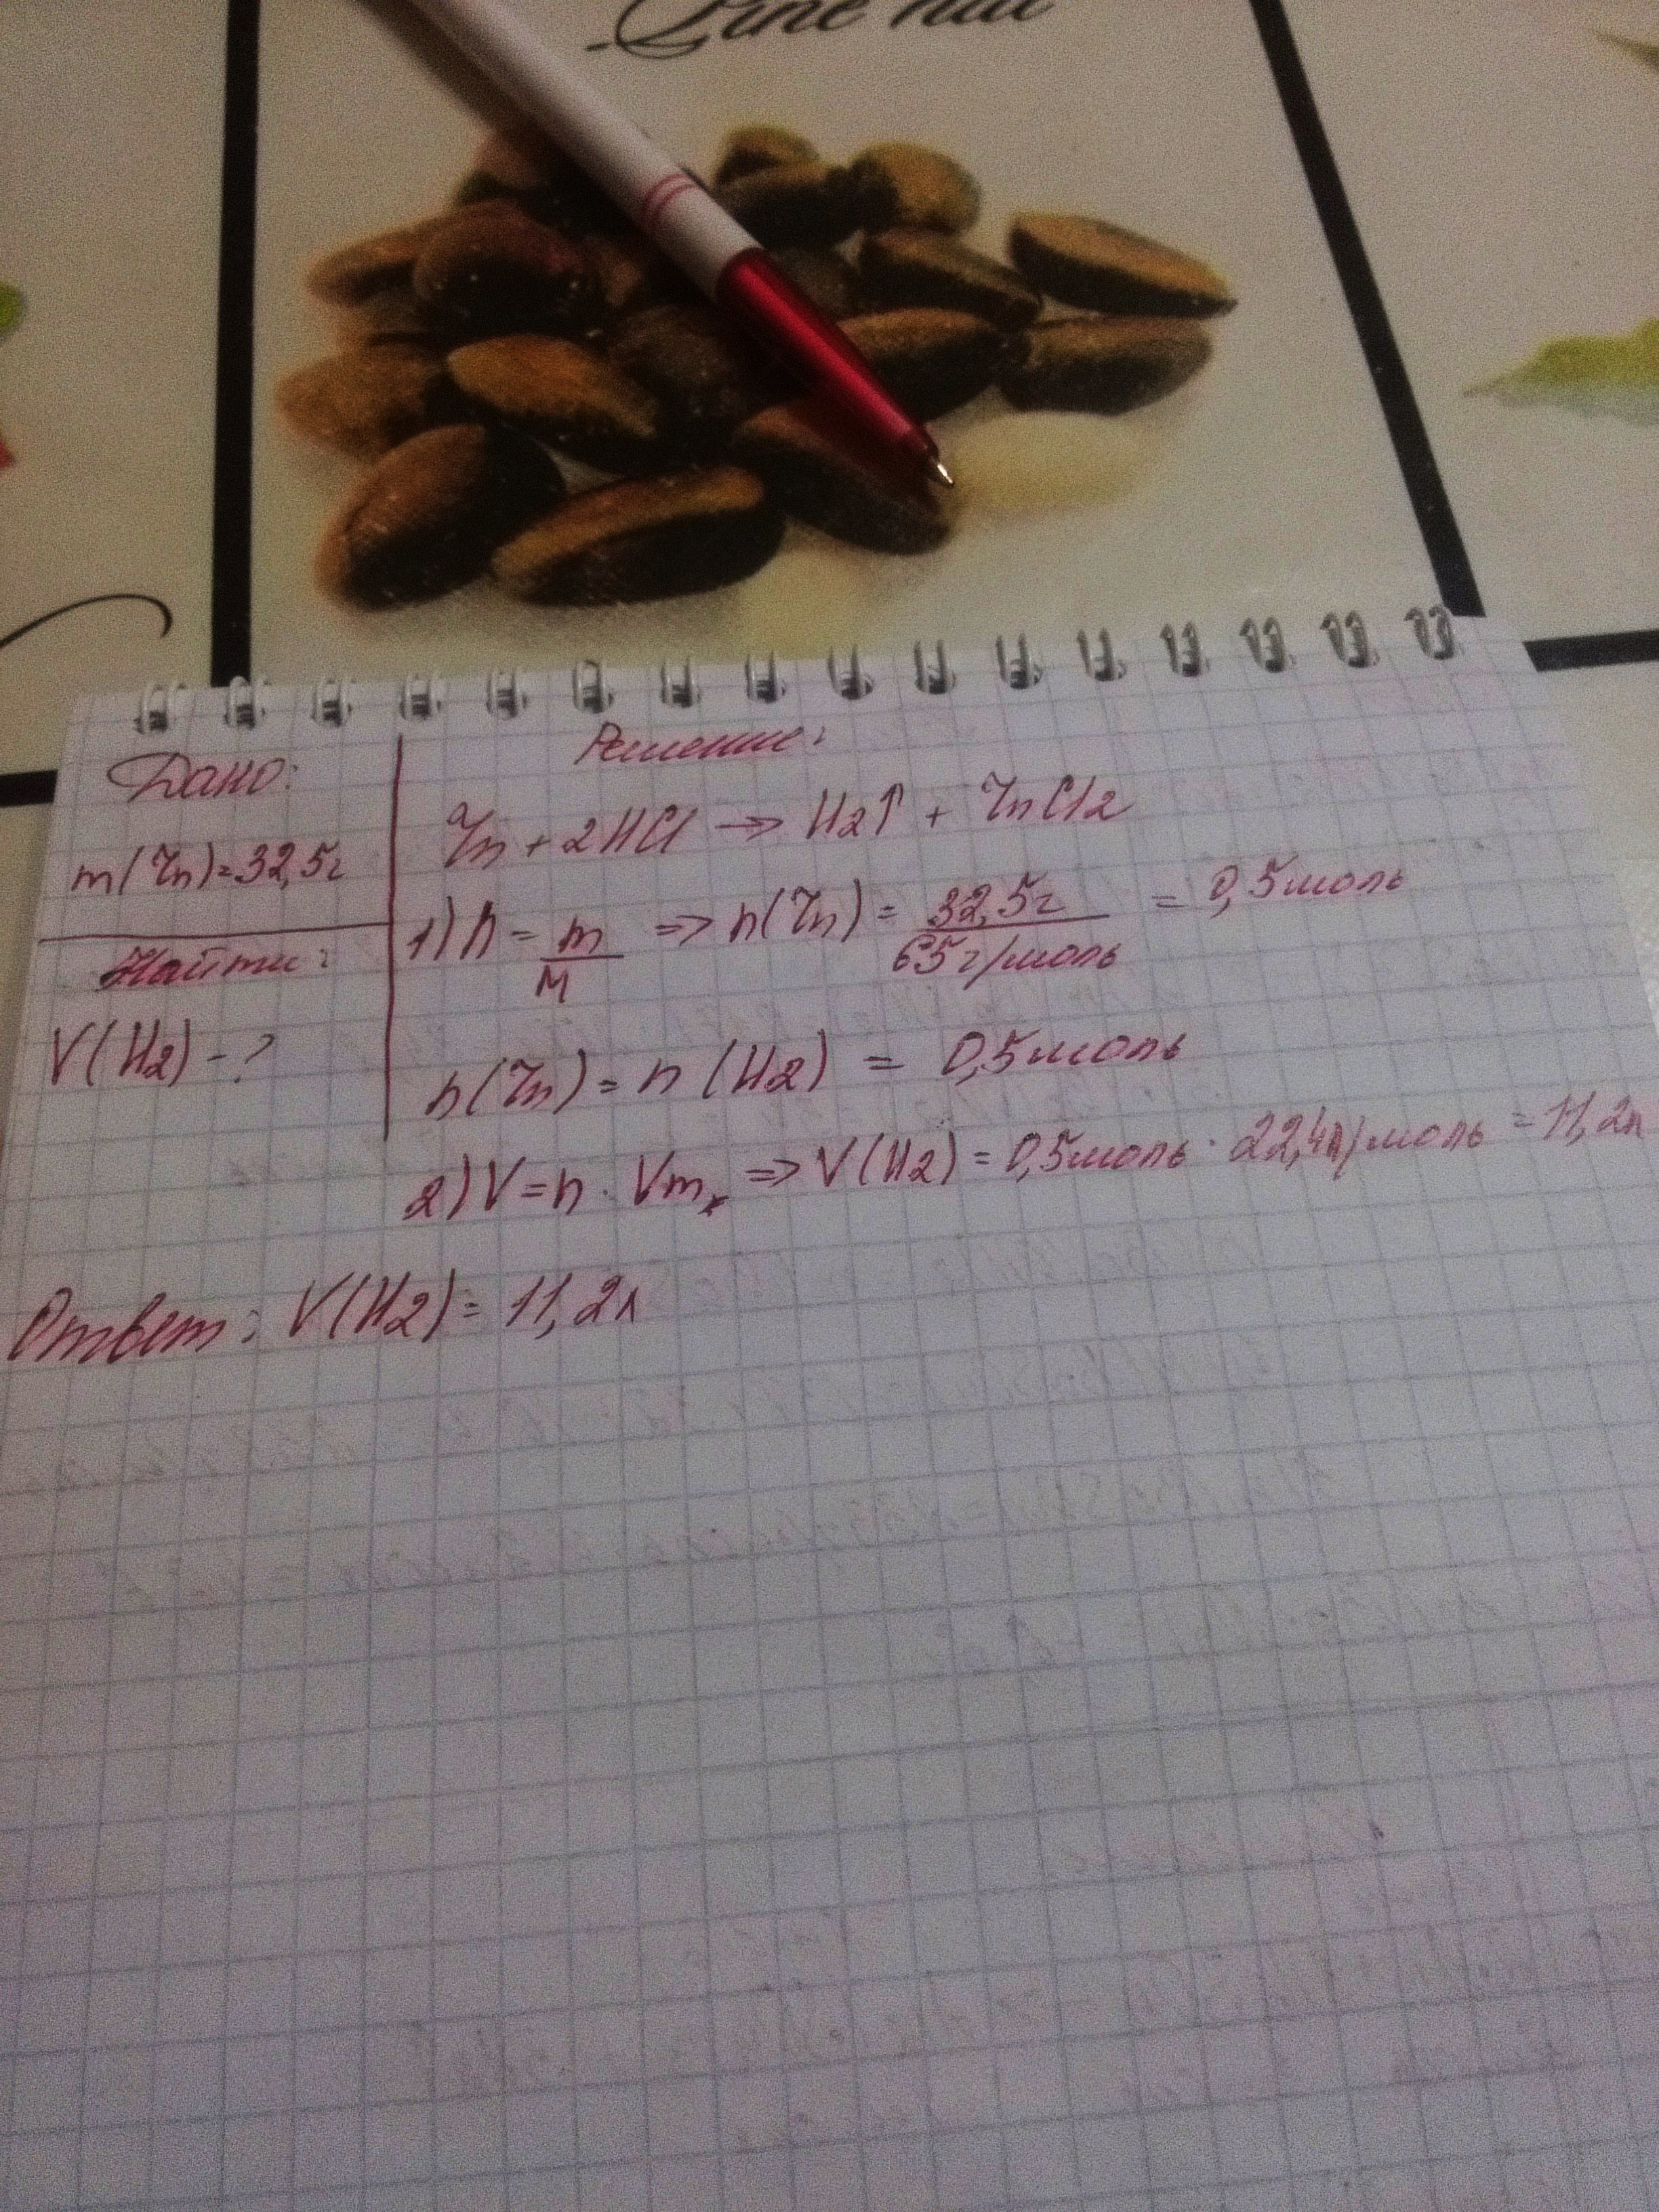 Pine nut
Дано:
m(Zn)=32,5г
Найти:
V(H2)-?
Решение:
Zn+2HCl → H2↑ + ZnCl2
1) n = m/M => n(Zn) = 32,5г/65г/моль = 0,5моль
n(Zn) = n(H2) = 0,5моль
2) V=n · Vm => V(H2)=0,5моль · 22,4л/моль =11,2л
Ответ: V(H2)= 11,2л